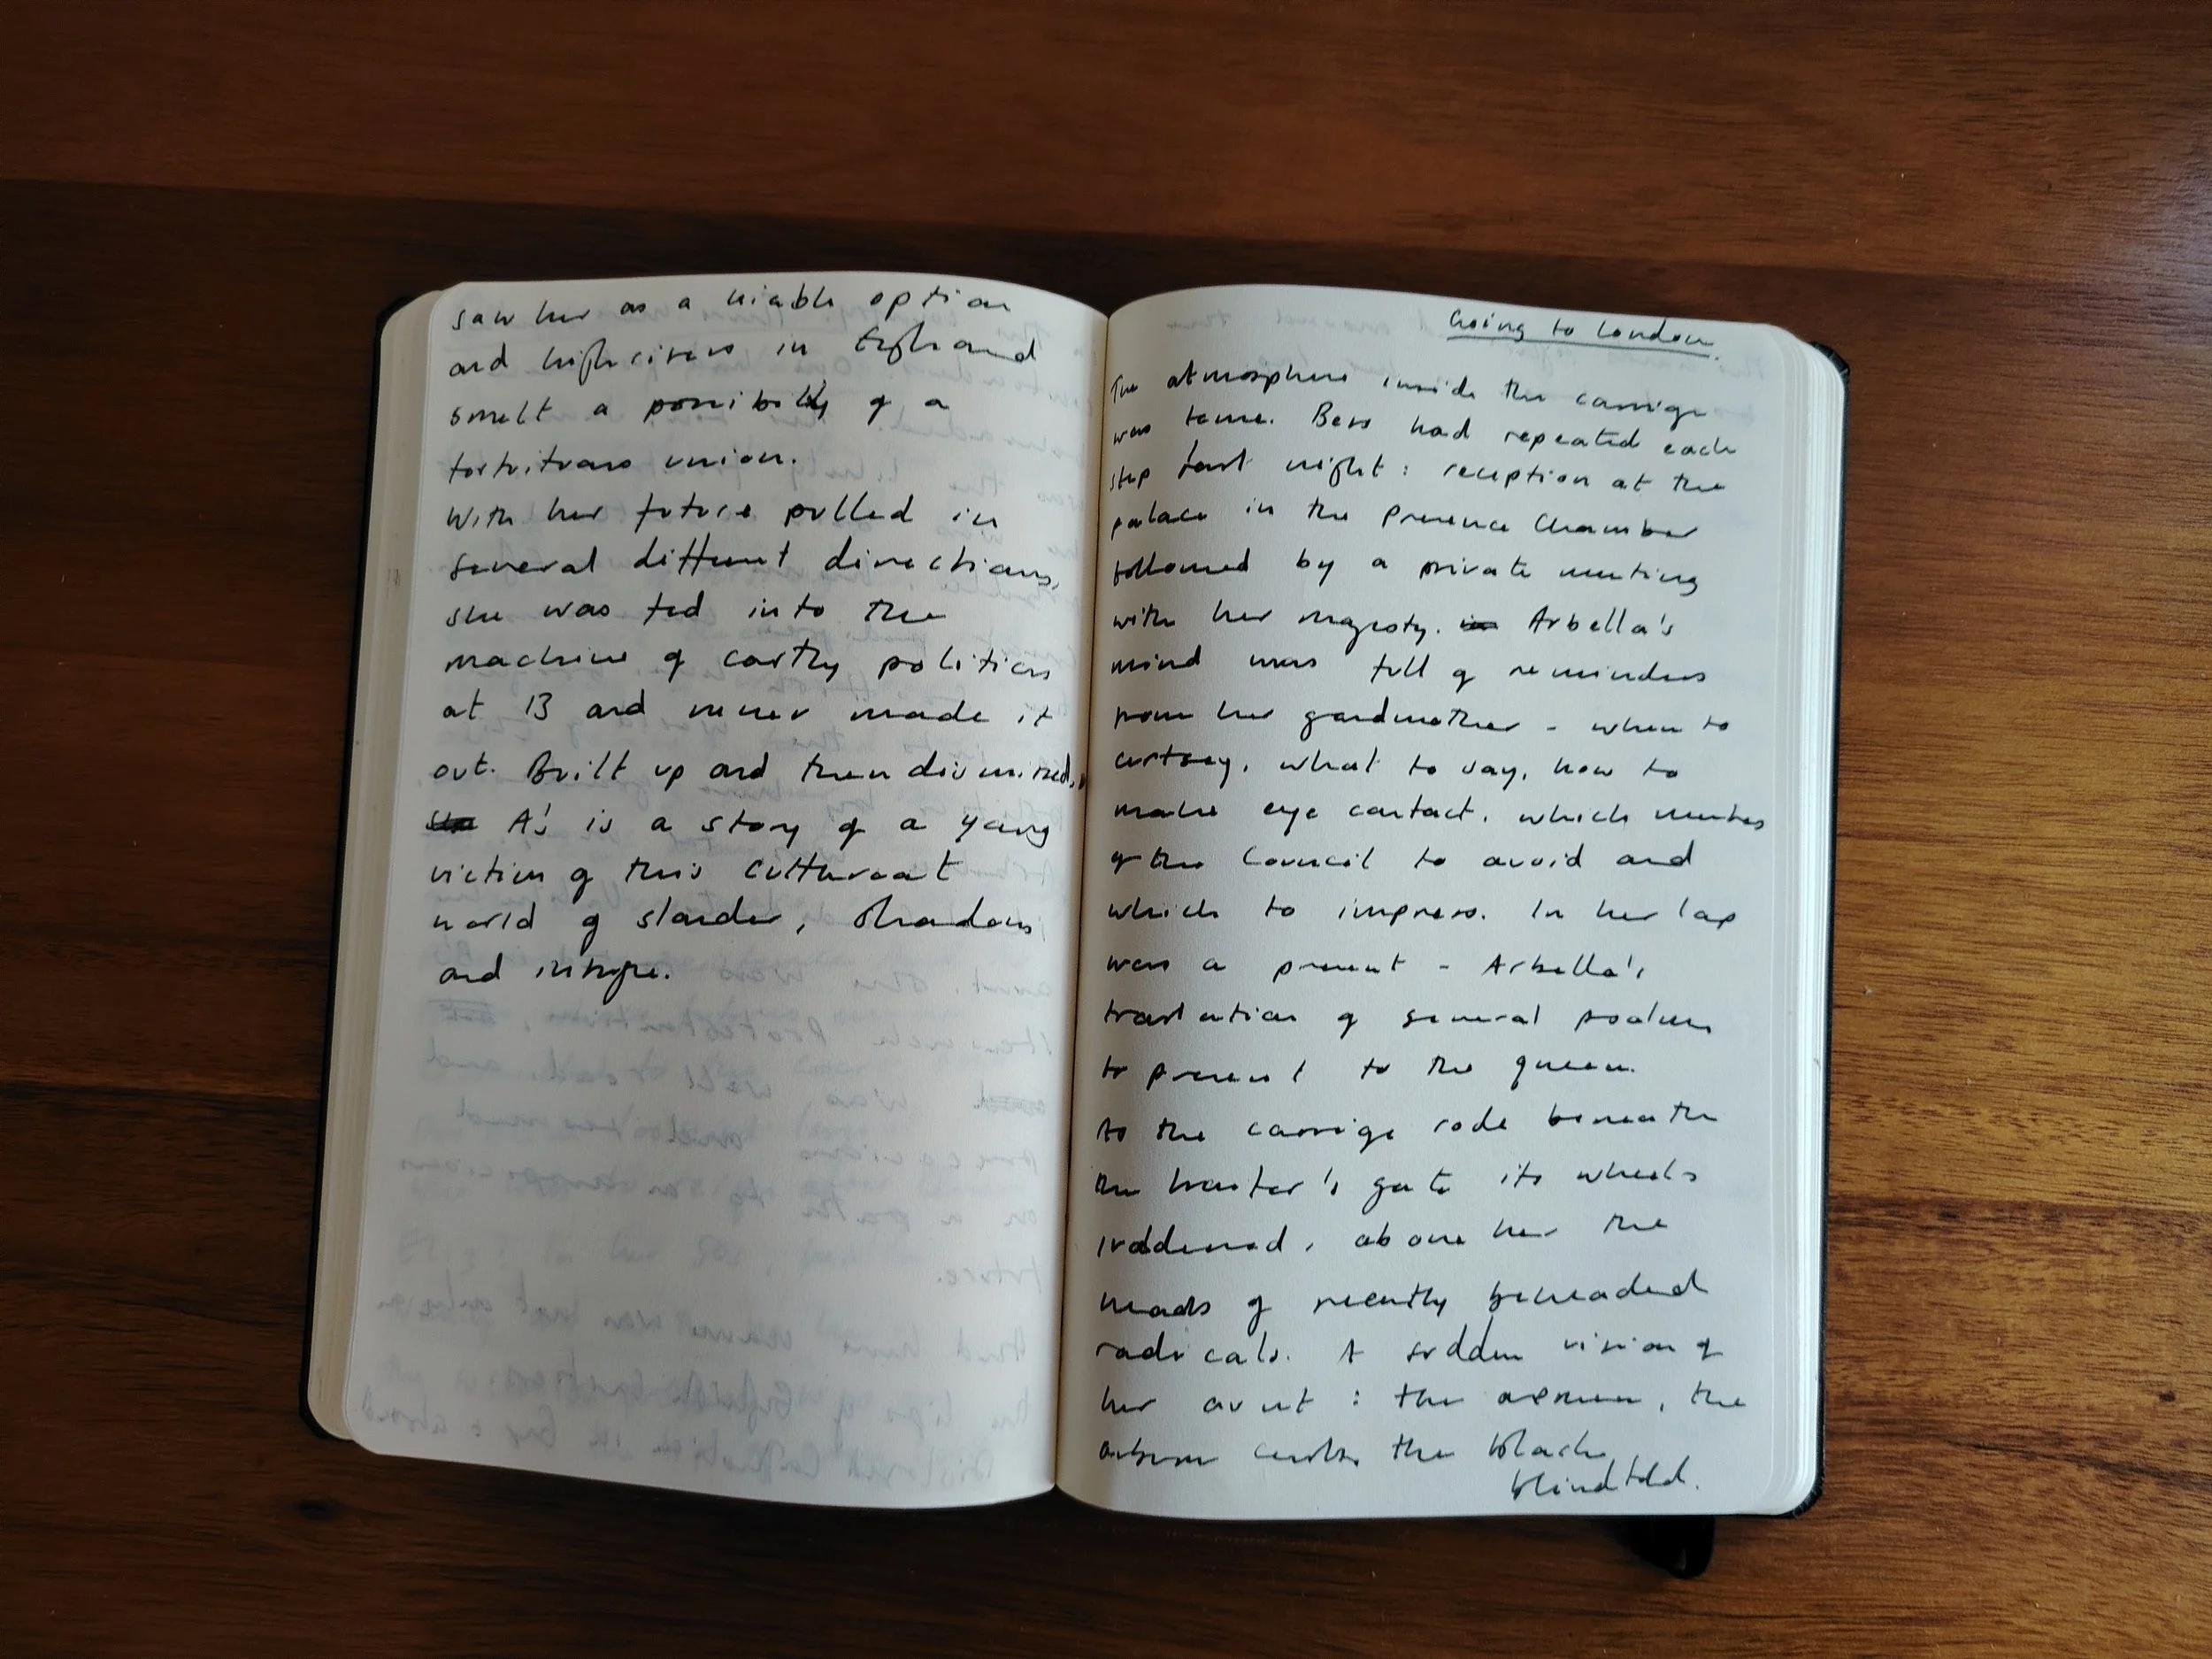 saw her as a viable option
and high circles in England
smelt a possibility of a
fortuitous union.
With her future pulled in
several different directions,
she was fed into the
machine of courtly politics
at 13 and never made it
out. Built up and then diminished,
A's is a story of a young
victim of this cutthroat
world of slander, shadows
and intrigue.
Going to London.
The atmosphere inside the carrige
was tense. Bess had repeated each
step last night: reception at the
palace in the Presence Chamber
followed by a private meeting
with her majesty. Arbella's
mind was full of reminders
from her gandmother - when to
curtsey, what to say, how to
make eye contact, which members
of the Council to avoid and
which to impress. In her lap
was a present - Arbella's
translation of several psalms
to present to the queen.
As the carrige rode beneath
the traitor's gate its wheels
juddered, above her the
heads of recently beheaded
radicals. A sudden vision of
her aunt: the, the
auburn curls, the black
blindfold.